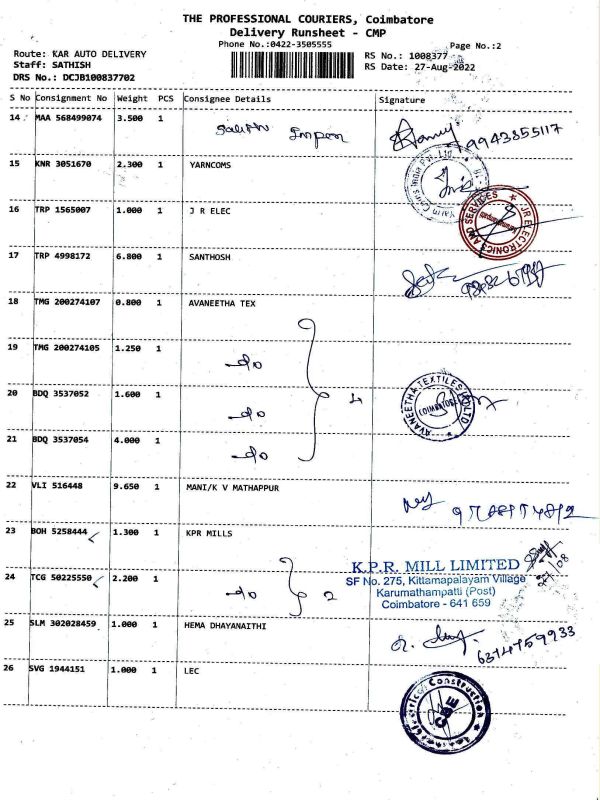 THE PROFESSIONAL COURIERS, Coimbatore
Delivery Runsheet - CMP
Phone No.:0422-3505555
Page No.:2
Route: KAR AUTO DELIVERY
Staff: SATHISH
DRS No.: DCJB100837702
RS No.: 1008377
RS Date: 27-Aug-2022
S No Consignment No Weight PCS Consignee Details Signature
14 MAA 568499074 3.500 1
9943855117
15 KNR 3051670 2.300 1 YARNCOMS
16 TRP 1565007 1.000 1 J R ELEC
JR ELECTRONICS AND SERVICES
17 TRP 4998172 6.800 1 SANTHOSH
18 TMG 200274107 0.800 1 AVANEETHA TEX
19 TMG 200274105 1.250 1
do
20 BDQ 3537052 1.600 1
do
4
AVANEETHA TEXTILES (P) LTD
COIMBATORE
21 BDQ 3537054 4.000 1
do
22 VLI 516448 9.650 1 MANI/K V MATHAPPUR
23 BOH 5258444 1.300 1 KPR MILLS
24 TCG 50225550 2.200 1
do 2
K.P.R. MILL LIMITED
SF No. 275, Kittamapalayam Village
Karumathampatti (Post)
Coimbatore - 641 659
27/08
25 SLM 302028459 1.000 1 HEMA DHAYANAITHI
6374759933
26 SVG 1944151 1.000 1 LEC
Electrical Construction
CBE